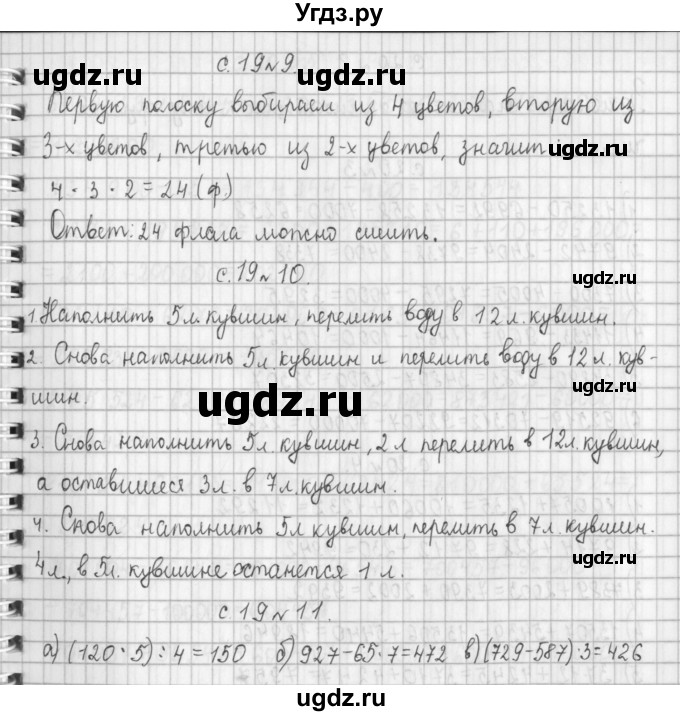 Угдз.ру
с. 19 № 9.
Первую полоску выбираем из 4 цветов, вторую из
3-х цветов, третью из 2-х цветов, значит
4 · 3 · 2 = 24 (ф.)
Ответ: 24 флага можно сшить.
с. 19 № 10.
1. Наполнить 5 л. кувшин, перелить воду в 12 л. кувшин.
2. Снова наполнить 5 л кувшин и перелить воду в 12 л. кув-
шин.
3. Снова наполнить 5 л. кувшин, 2 л перелить в 12 л. кувшин,
а оставшиеся 3 л. в 7 л. кувшин.
4. Снова наполнить 5 л кувшин, перелить в 7 л. кувшин.
4 л., в 5 л. кувшине останется 1 л.
с. 19 № 11.
а) (120 · 5) : 4 = 150 б) 927 – 65 · 7 = 472 в) (729 – 587) · 3 = 426
ugdz.ru
ugdz.ru
ugdz.ru
ugdz.ru
ugdz.ru
ugdz.ru
ugdz.ru